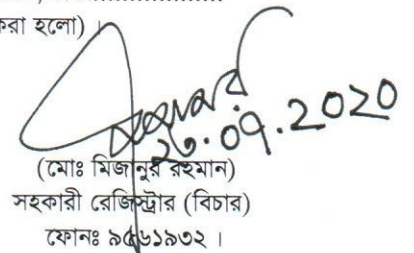 করা হলো) ।
২৩.০৭.২০২০
(মোঃ মিজানুর রহমান)
সহকারী রেজিস্ট্রার (বিচার)
ফোনঃ ৯৫৬১৯৩২ ।